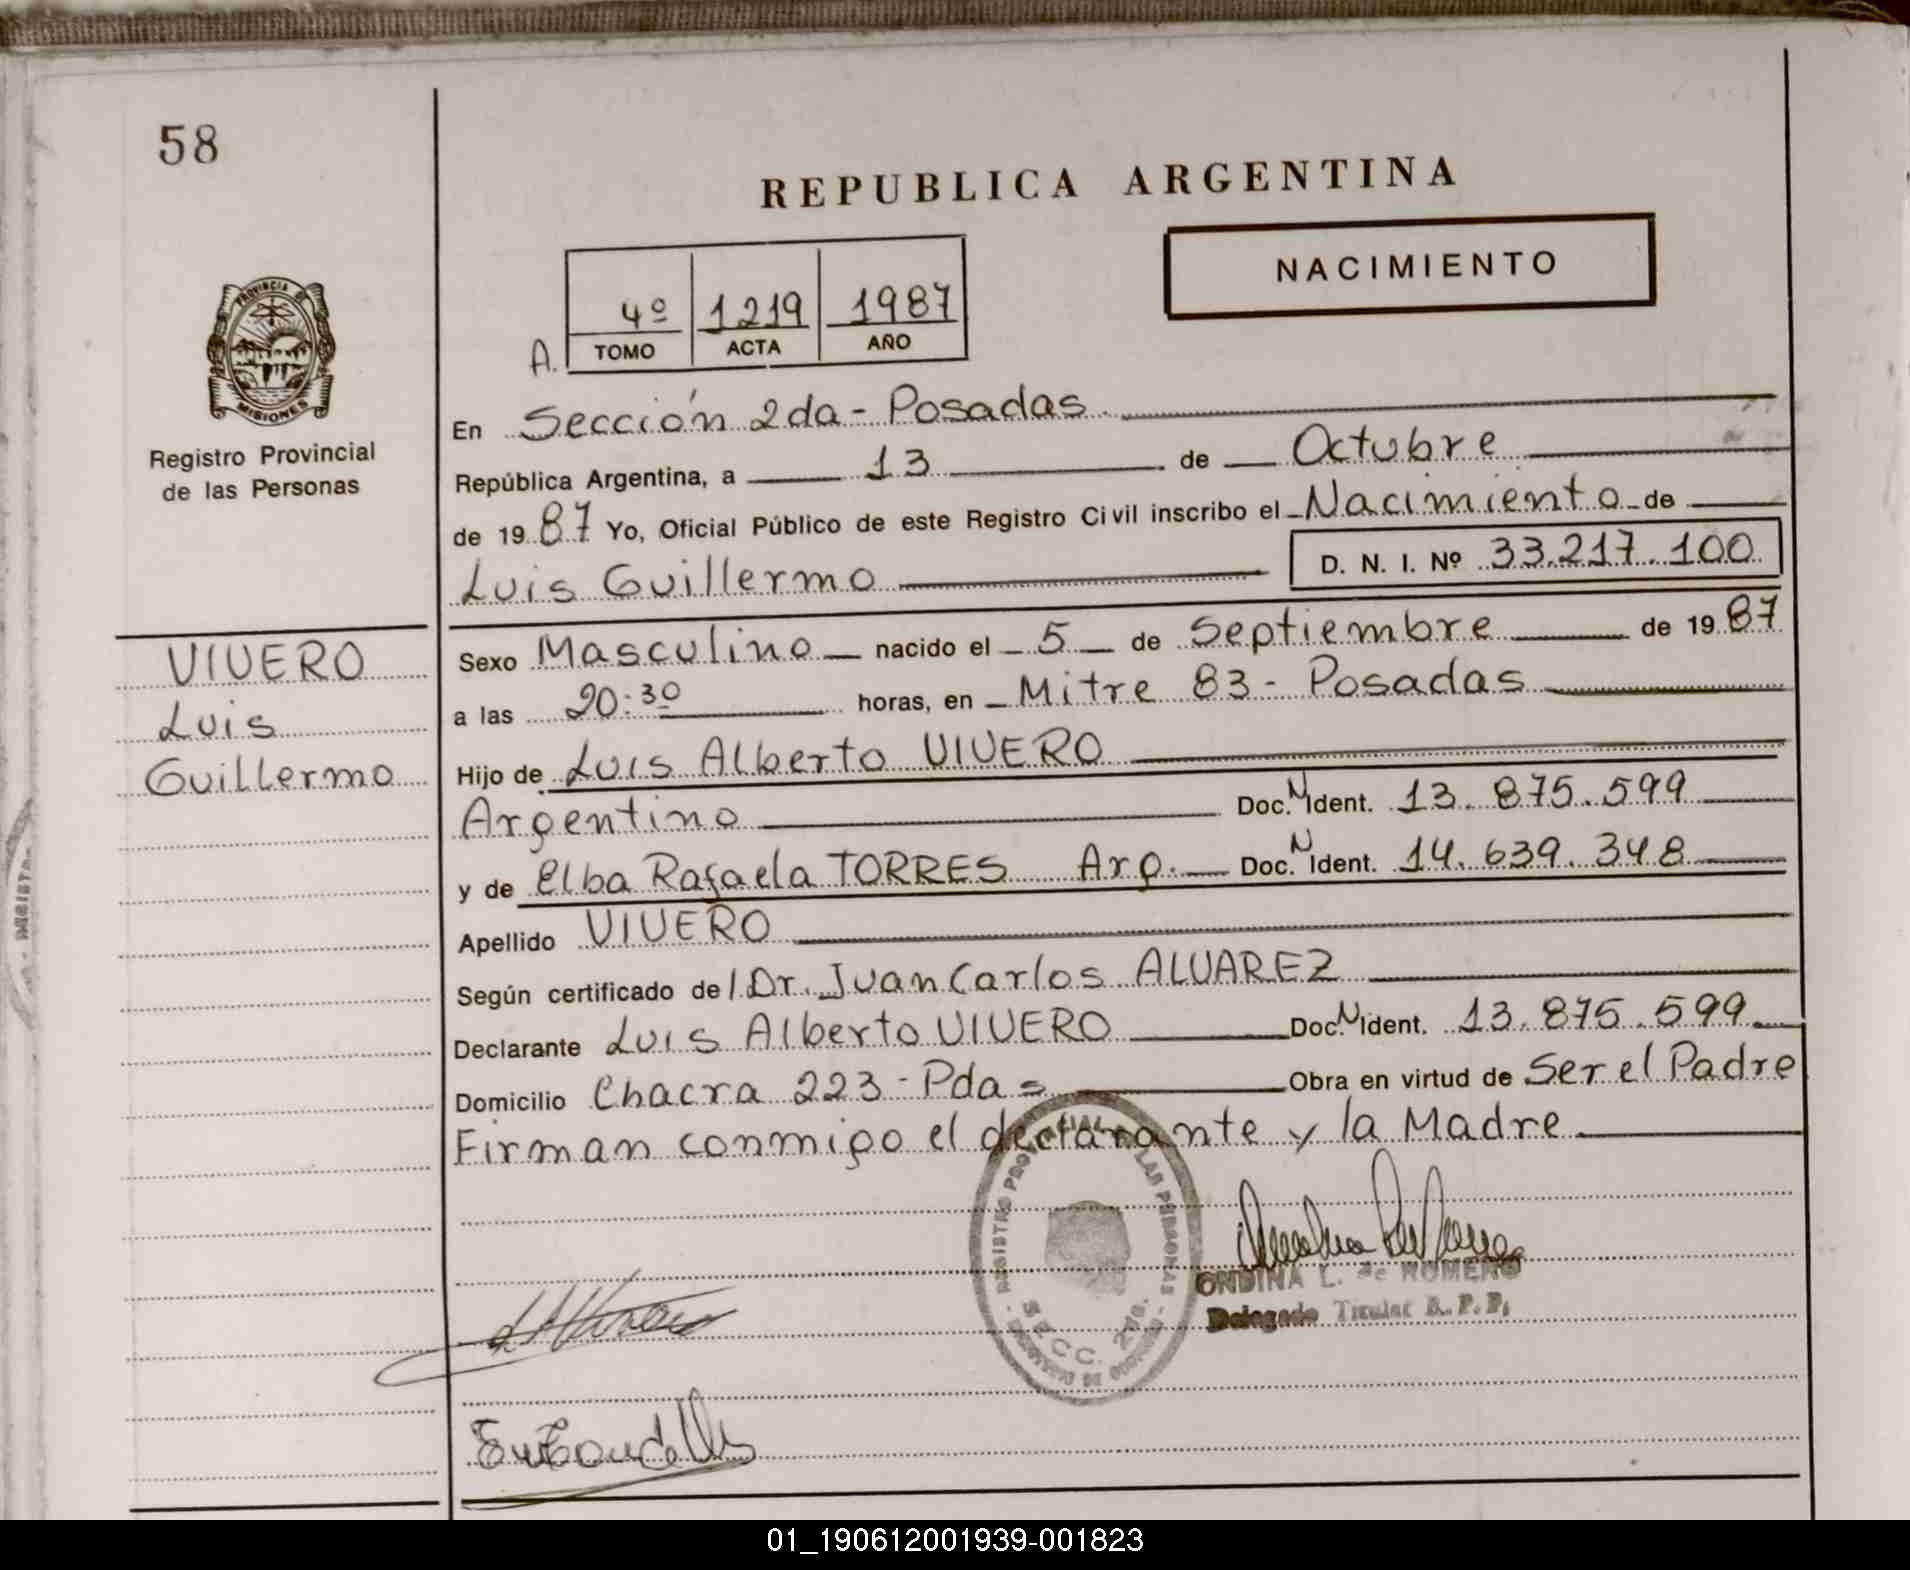 58
REPUBLICA ARGENTINA
NACIMIENTO
4º 1219 1987
A. TOMO ACTA AÑO
PROVINCIA DE
MISIONES
Registro Provincial
de las Personas
En Sección 2da - Posadas
República Argentina, a 13 de Octubre
de 1987 Yo, Oficial Público de este Registro Civil inscribo el Nacimiento de
Luis Guillermo D. N. I. Nº 33.217.100
VIVERO
Luis
Guillermo
Sexo Masculino nacido el 5 de Septiembre de 1987
a las 20:30 horas, en Mitre 83 - Posadas
Hijo de Luis Alberto VIVERO
Argentino Doc. N Ident. 13.875.599
y de Elba Rafaela TORRES Arg. Doc. N Ident. 14.639.348
Apellido VIVERO
Según certificado del Dr. Juan Carlos ALVAREZ
Declarante Luis Alberto VIVERO Doc. N Ident. 13.875.599
Domicilio Chacra 223 - Pdas Obra en virtud de Ser el Padre
Firman conmigo el declarante y la Madre
REGISTRO PROVINCIAL DE LAS PERSONAS
SECC. 2da.
ONDINA L. de ROMERO
Delegado Titular R. P. P.
01_190612001939-001823